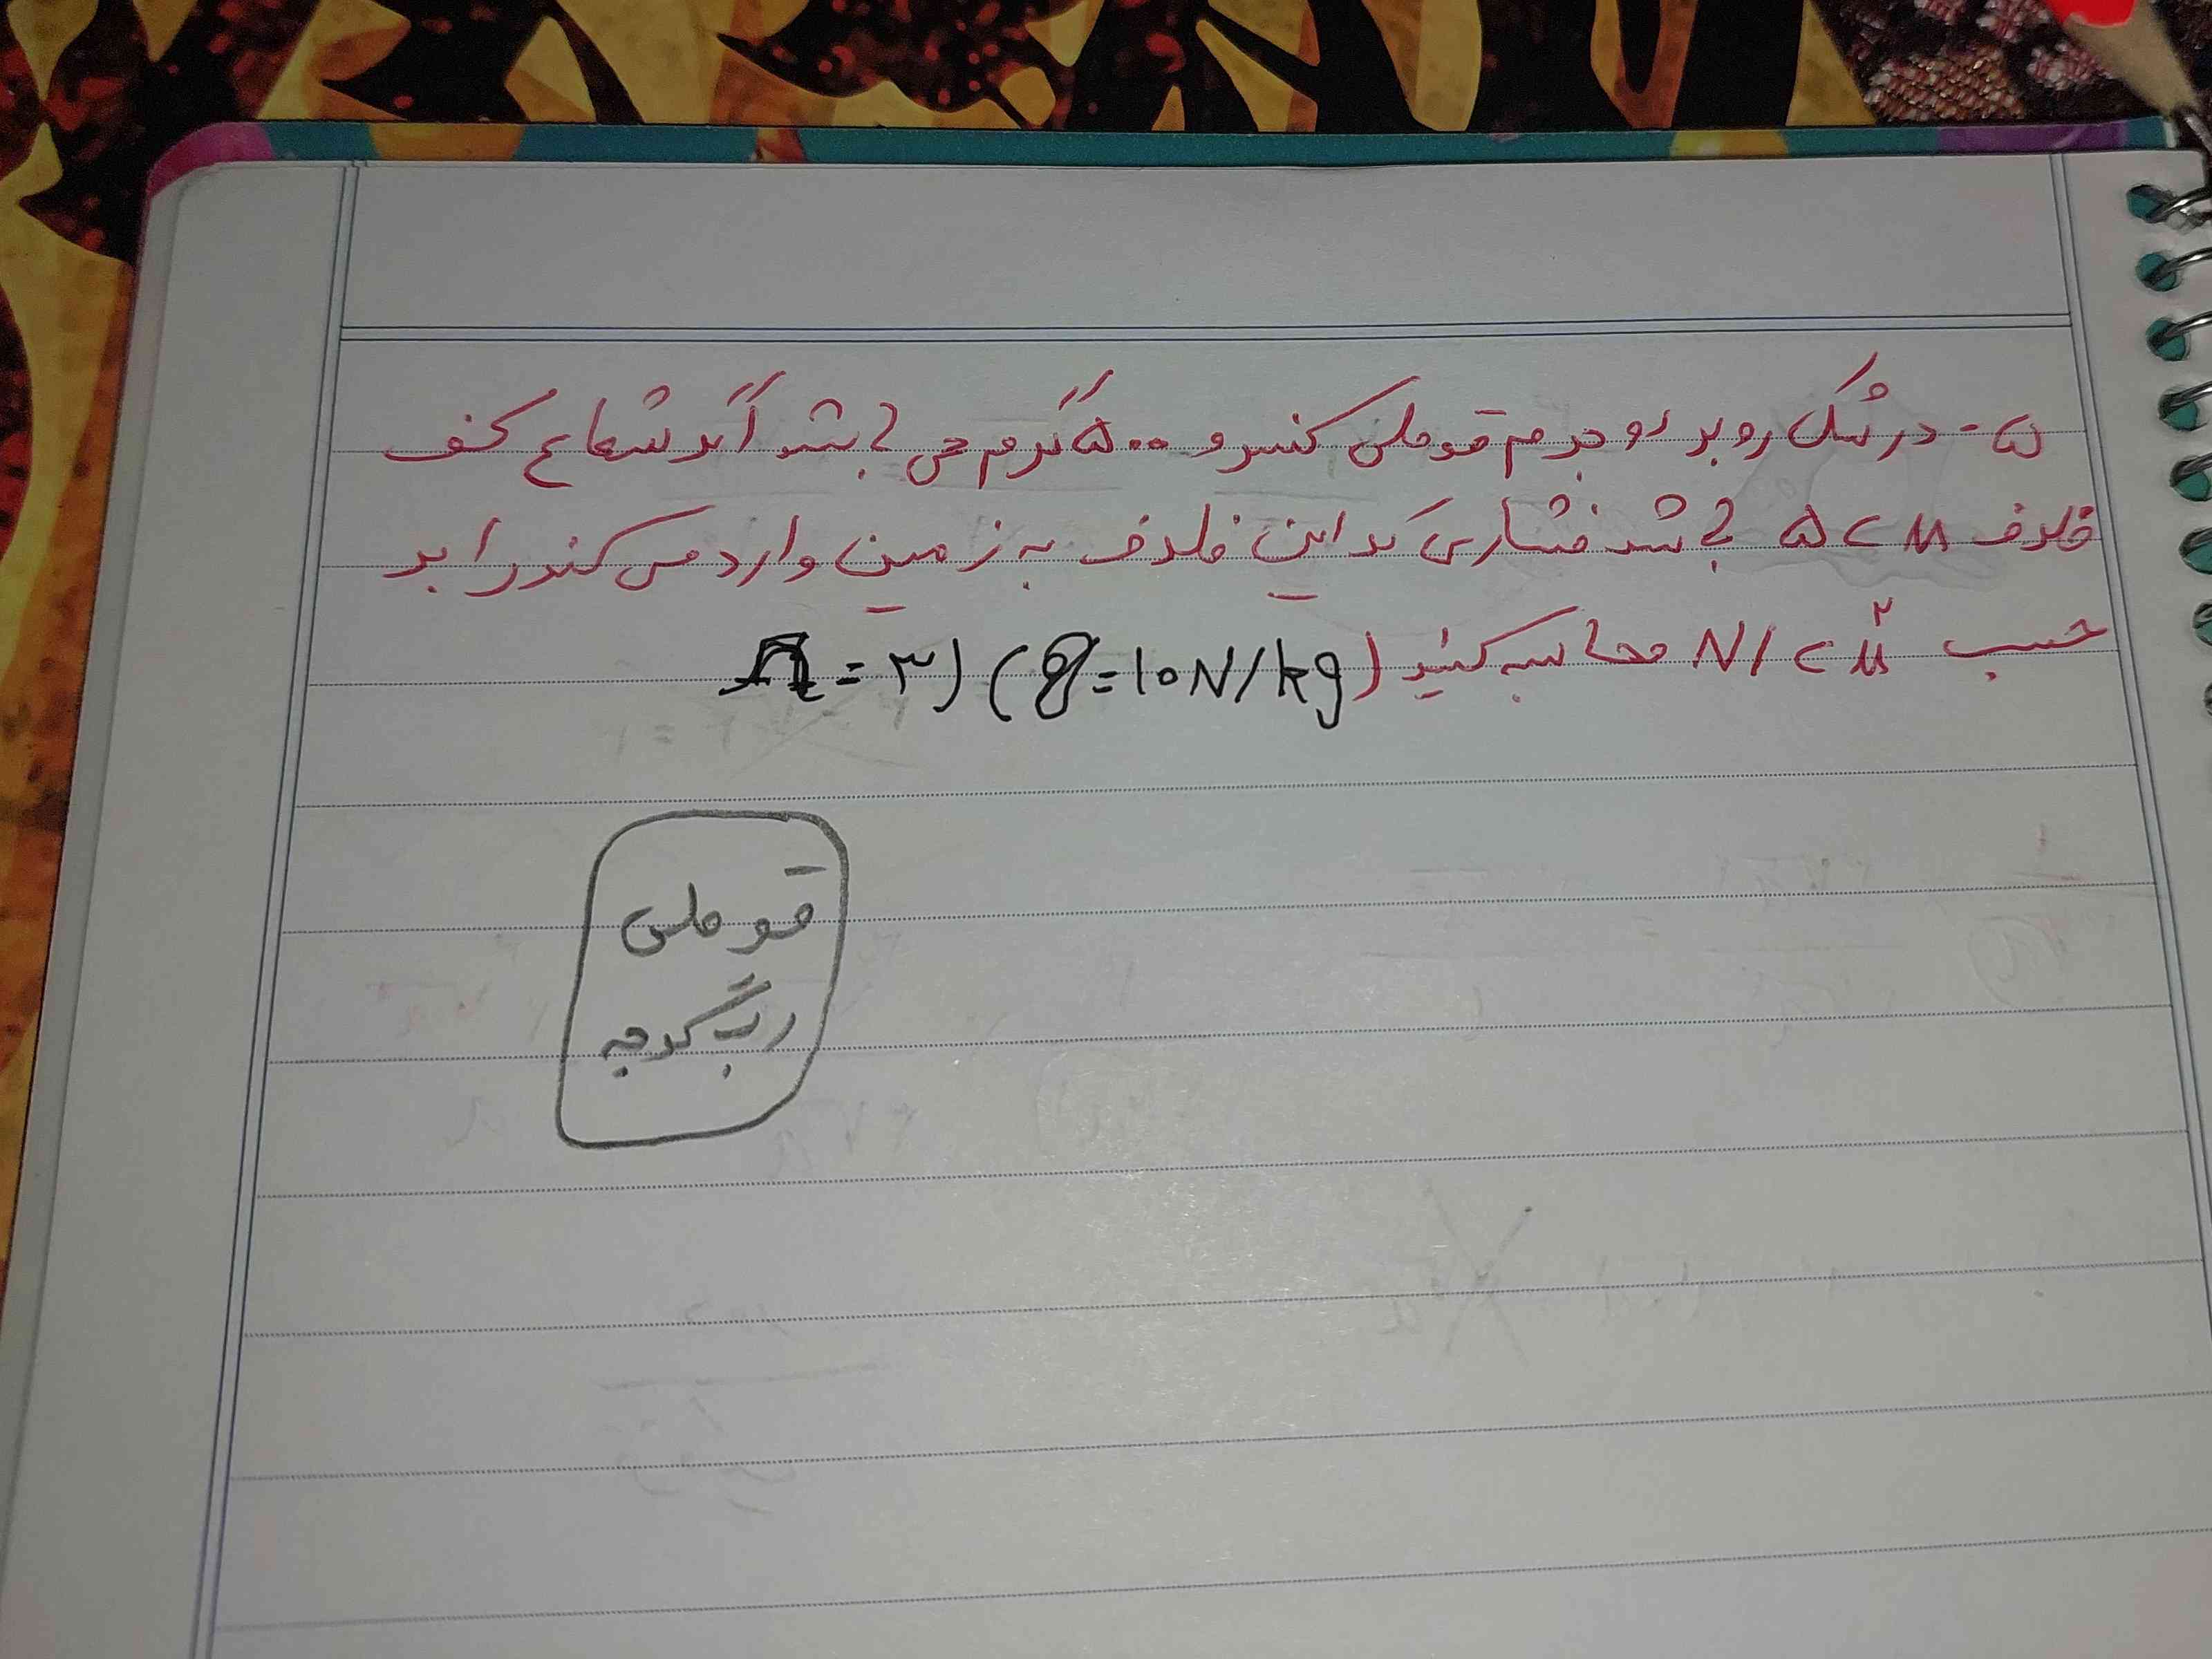 ۵- در شکل روبر رو جرم قوطی کنسرو ۵۰۰ گرم می باشد اگر شعاع کف
ظرف ۵ cm باشد فشاری که این ظرف به زمین وارد می کند را بر
حسب N/cm² محاسبه کنید (g=10N/kg) (π=۳
قوطی
رب گوجه